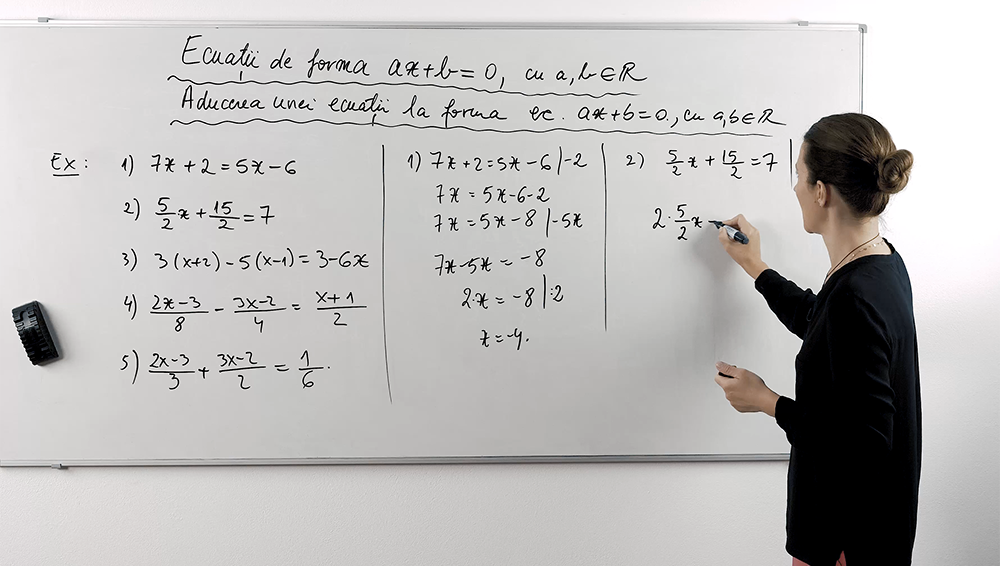 Ecuații de forma ax+b=0, cu a,b∈R
Aducerea unei ecuații la forma ec. ax+b=0., cu a,b∈R
Ex:
1) 7x+2=5x-6
2) 5/2 x + 15/2 = 7
3) 3(x+2)-5(x-1)=3-6x
4) (2x-3)/8 - (3x-2)/4 = (x+1)/2
5) (2x-3)/3 + (3x-2)/2 = 1/6.
1) 7x+2=5x-6 |-2
7x=5x-6-2
7x=5x-8 |-5x
7x-5x=-8
2·x=-8 |:2
x=-4.
2) 5/2 x + 15/2 = 7 |
2· 5/2 x